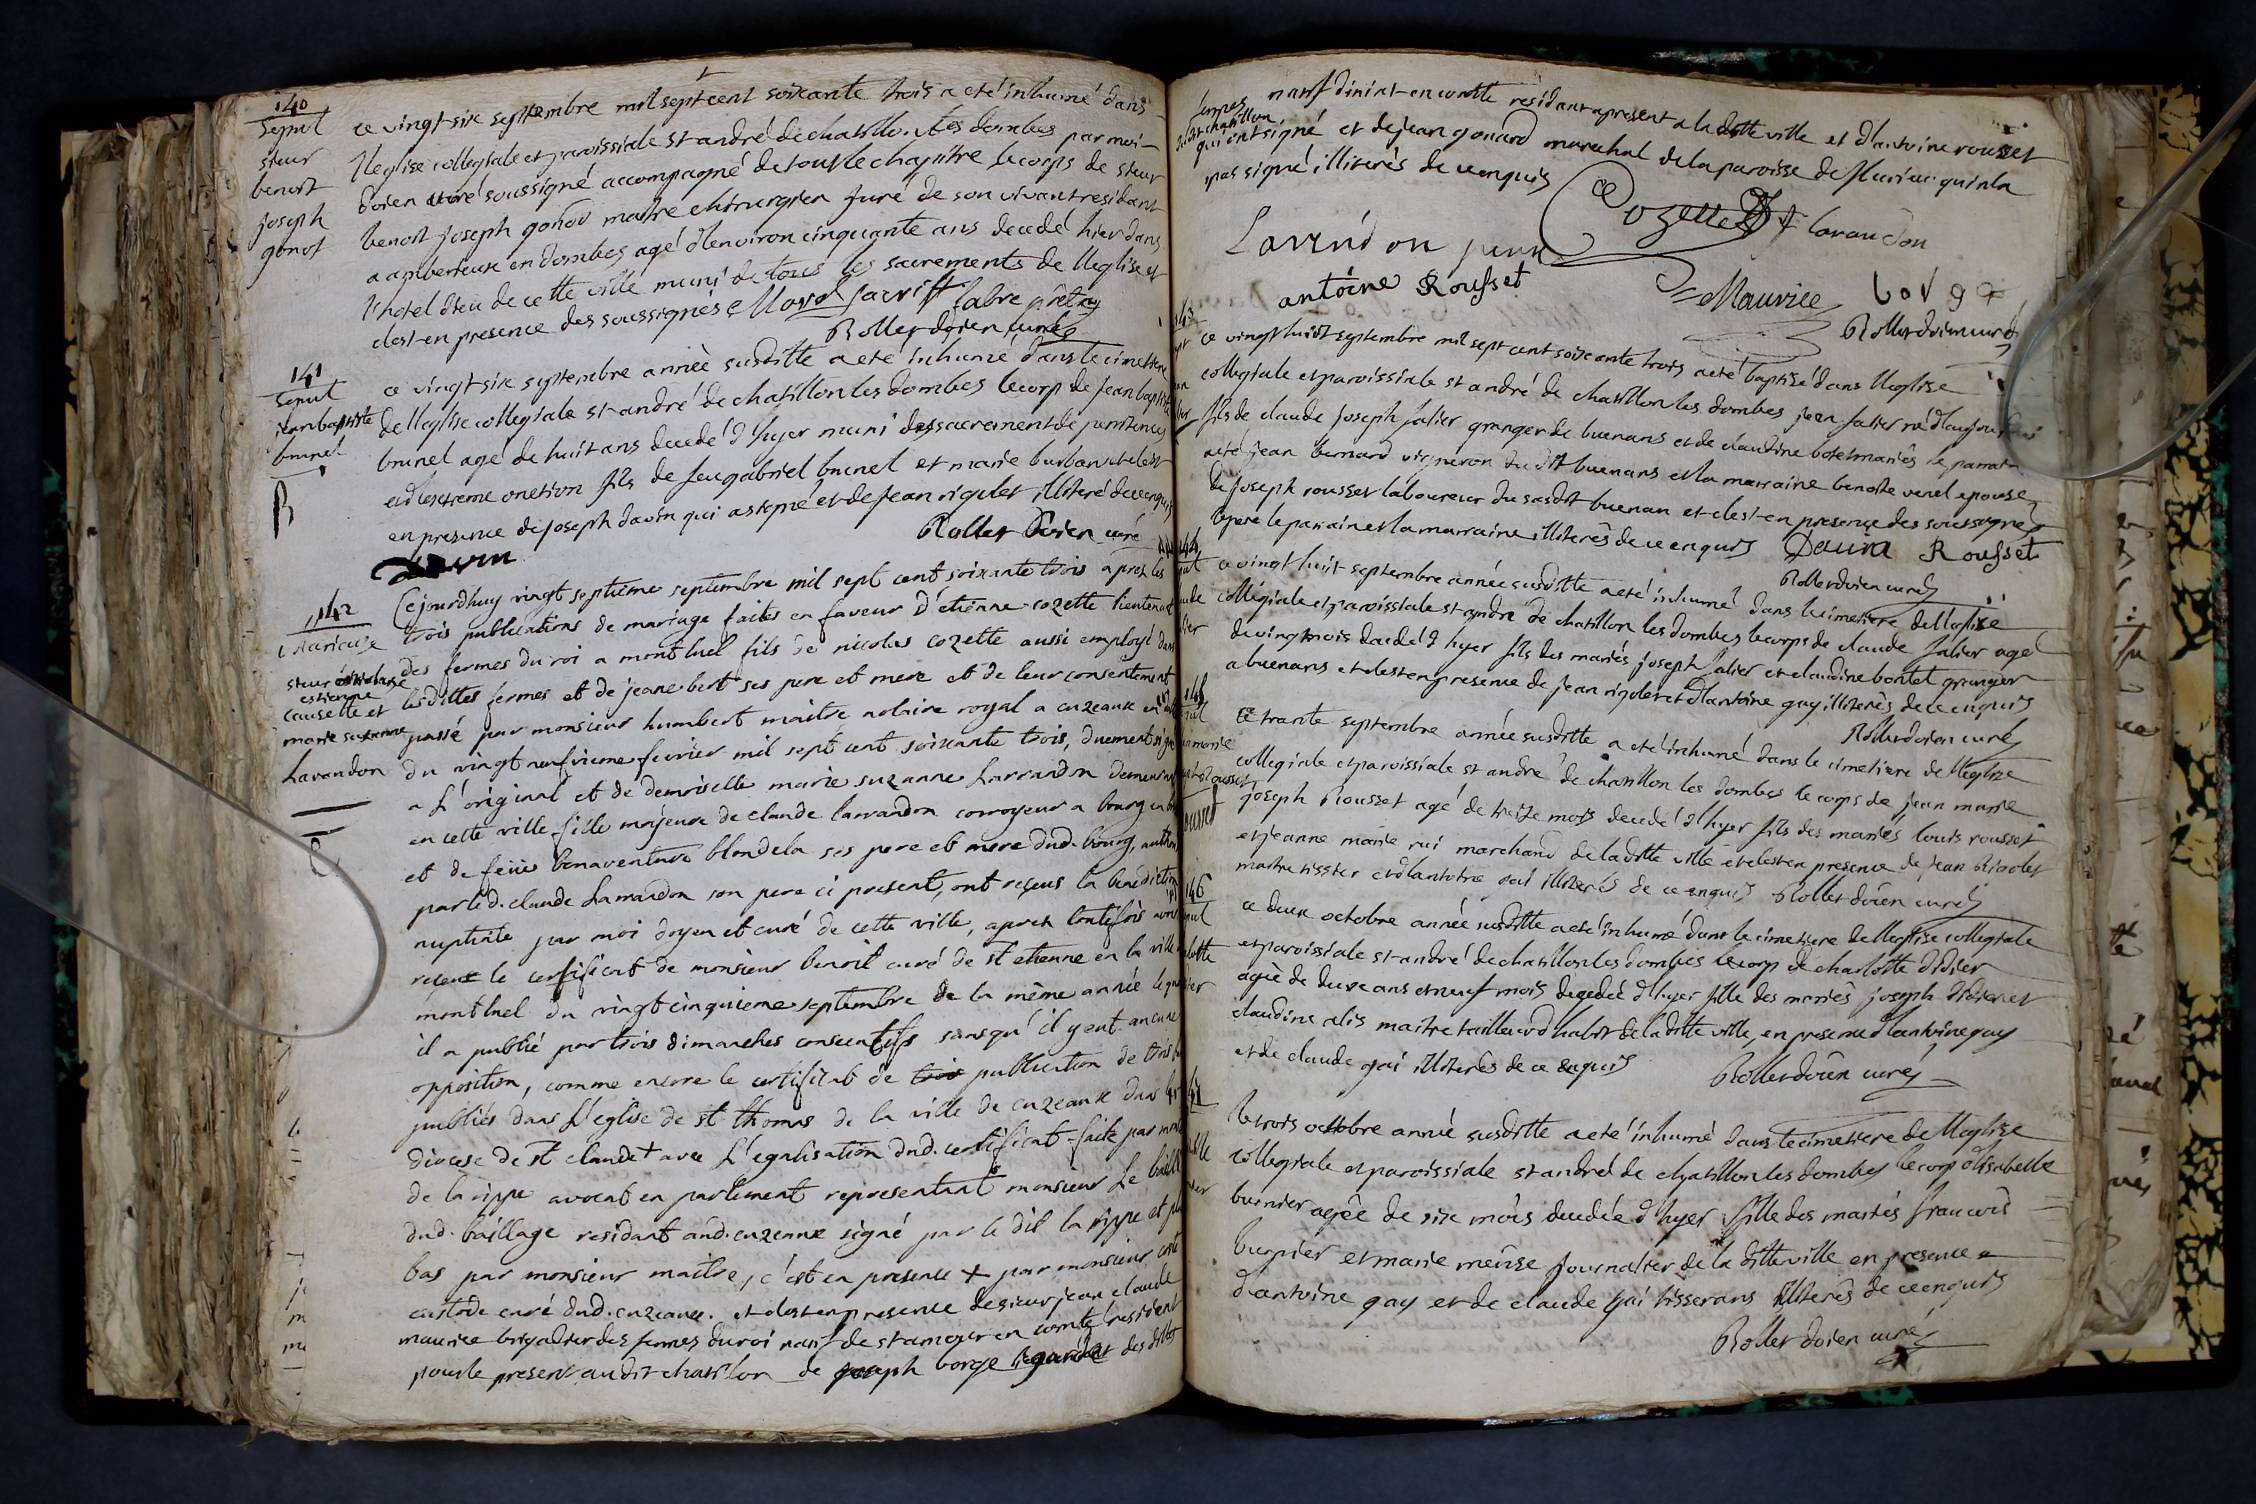 140
sepult
sieur
benoit
joseph
gonof
ce vingt-six septembre mil sept cent soixante trois a eté inhumé dans
l'leglise collegiale et paroissiale st andré de chatillon les dombes par moi
doien curé soussigné accompagné de tout le chapitre le corps de sieur
benoit joseph gonod maitre chirurgien juré de son vivant residant
a amberieux en dombes agé d'lenviron cinquante ans decedé hier dans
l'hotel dieu de cette ville muni de tous les sacrements de l'leglise et
c'lest-en presence des soussignés Morel sacrist fabre prêtre
Rollet doien curé
141
sepult
jean baptiste
brunel
ce vingt-six septembre annéé susditte a eté inhumé dans le cimetiere
de l'leglise collegiale st-andré de chatillon les dombes le corp de jean baptiste
brunel agé de huit ans decedé d'hyer muni des sacrement de penitence
et d'extreme onction fils de feu gabriel brunel et marie burban et c'lest
en presence de joseph davin qui a signé et de jean rigolet illiteré de ce enquis
Rollet doien curé
davin
142
mariage
sieur
estienne
causette et
marie suzanne
Lavandon
Cejourdhuy vingt septieme septembre mil sept cent soixante trois apret les
trois publications de mariage faites en faveur d'étienne cozette lieutenant
des fermes du roi a montluel fils de nicolas cozette aussi employé dans
lesdittes fermes et de jeane bert ses pere et mere et de leur consentement
passé par monsieur humbert maitre notaire royal a cuzeaux en
du vingt neufvieme fevrier mil sept cent soixante trois, duement signé
a L'original et de demoiselle marie suzanne Lavandon demeurant
en cette ville fille majeure de claude lavandon corroyeur a bourg en
et de feüe bonaventure blondela ses pere et mere dud. bourg, authorisée
par led. claude Lavandon son pere ci present, ont reçeus la benediction
nuptiale par moi doyen et curé de cette ville, apret toutefois avoir
receut le certificat de monsieur benoit curé de st etienne en la ville
montluel du vingt cinquieme septembre de la même année lequel
il a publié par trois dimanches consecutifs sans qu'il y eut aucune
opposition, comme encore le certificat de trois publication de trois
publiés dans L'eglise de st thomas de la ville de cuzeaux dans le
diocese de st claude + avec L'egalisation dud. certificat faite par
de la rippe avocat en parlement representant monsieur Le bailli
dud. baillage residant aud. cuzeaux signé par le dit la rippe et plus
bas par monsieur maitre, c'est en presence + par monsieur
custode curé dud. cuzeaux. et c'lest en presence de sieur jean claude
maurice brigadier des fermes du roi natif de st amour en comté resident
pour le present audit chatillon de joseph borge garde des dittes
fermes
natif diniat-en comté residant apresent a la ditte ville et d'lantoine rousset
qui ont signé et de jean gonard marechal de la paroisse de fluriac qui n'la
pas signé illiterés de ce enquis
Cozette lavandon
Lavend on
antoine Rousset
Maurice borge
Rollet doien curé
ce vingt huit septembre mil sept cent soixante trois a eté baptisé dans l'leglise
collegiale et paroissiale st andré de chatillon les dombes jean falier né d'laujourdhui
fils de claude joseph falier granger de buenans et de claudine botel mariés le parrain
a eté jean bernard vigneron du dit buenans et la marraine benoite venel epouse
de joseph rousset laboureur du susdit buenan et c'lest-en presence des soussignés
le pere le parain et la marraine illiterés de ce enquis Davin Rousset
Rollet doien curé
144
ce vingt huit septembre année susditte a eté inhumé dans le cimetiere de l'leglise
collegiale et paroissiale st andré de chatillon les dombes le corps de claude falier agé
de vingt mois decedé d'hyer fils des mariés joseph falier et claudine bontel granger
a buenans et c'lest en presence de jean rigolet et d'lantoine gay illiterés de ce enquis
Rollet doien curé
145
ce trante septembre année susditte a eté inhumé dans le cimetiere de l'leglise
collegiale et paroissiale st andré de chatillon les dombes le corps de jean marie
joseph Rousset agé de traize mois decedé d'hyer fils des mariés louis rousset
et jeanne marie rui marchand de la ditte ville et c'lest en presence de jean Rigolet
maitre tissier et d'lantoine gai illiterés de ce enquis Rollet doien curé
146
ce deux octobre année susditte a eté inhumé dans le cimetiere de l'leglise collegiale
et paroissiale st-andré de chatillon les dombes le corp de charlotte didier
agéé de deux ans et neuf mois decedeé d'hyer fille des mariés joseph didier et
claudine alis maitre tailleur d'habit de la ditte ville, en presence d'lantoine gay
et de claude gai illiterés de ce enquis
Rollet doien curé
le trois octobre anné susditte a eté inhumé dans le cimetiere de l'leglise
collegiale et paroissiale st andré de chatillon les dombes le corp d'lisabelle
burnier agéé de six mois decedée d'hyer fille des mariés francois
burnier et marie meûse journalier de la ditte ville en presence
d'antoine gay et de claude gai tisserans illiterés de ce enquis
Rollet doien curé